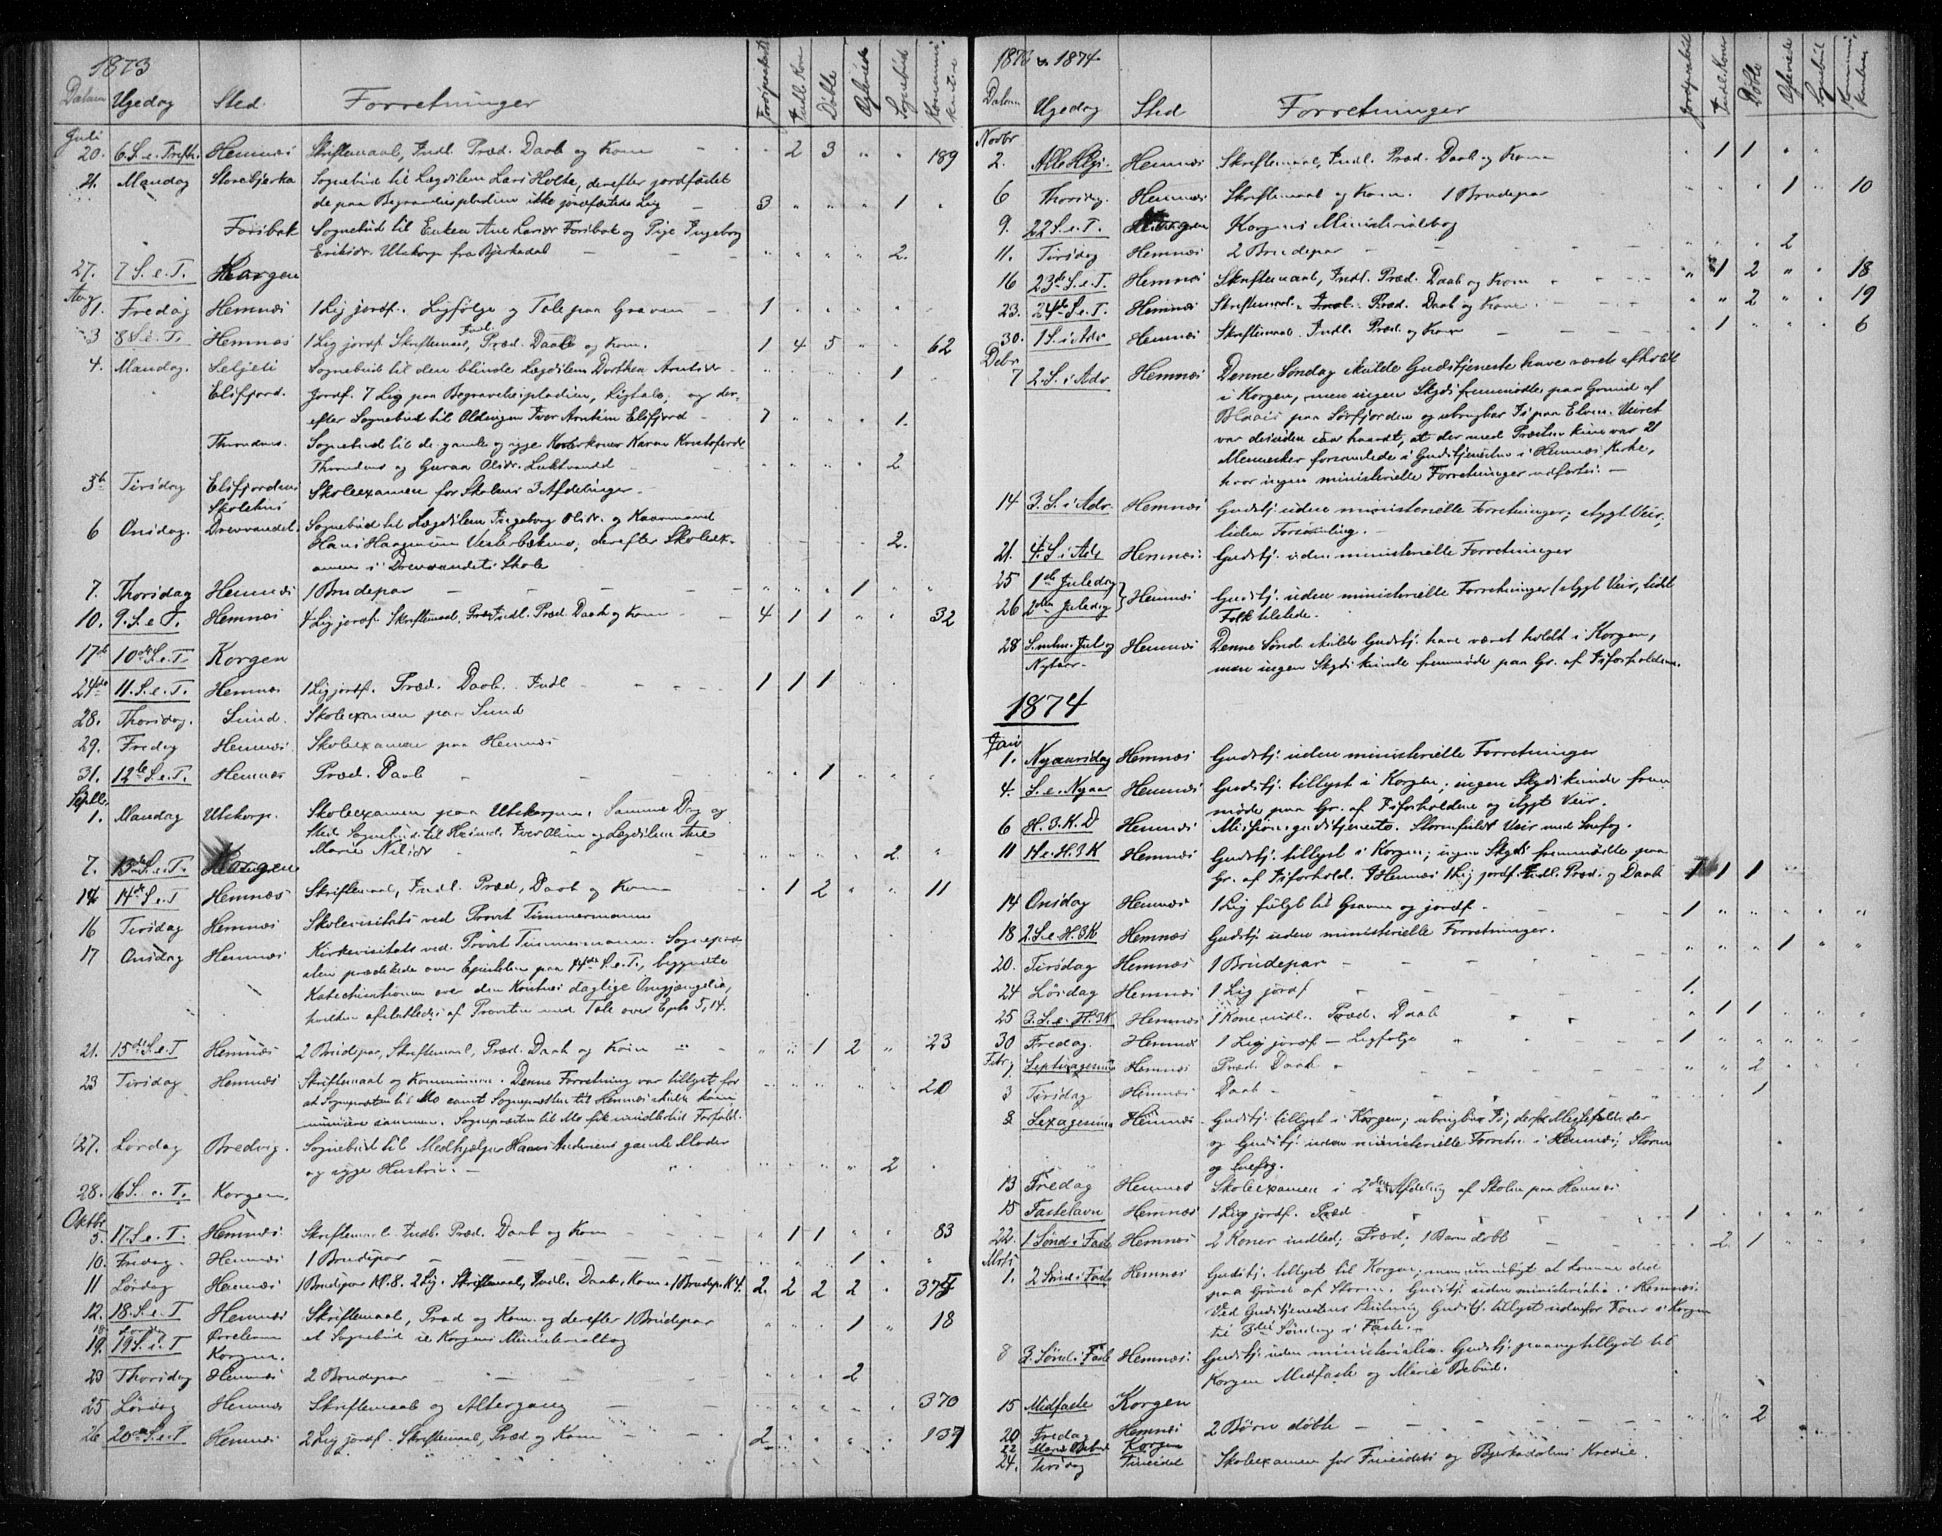 1873
Datum Ugedag Sted. Forretninger Indl. Kone Döbte Sognebud
Juli
20. 6. S. e. Trefh. Hemnæs Skriftemaal, Indl. Præd. Daab og Kom " 2 3 " " 189
21. Mandag Storebjerka Sognebud til Lægdslem Lars Holte, derefter jordfæstet
de paa Begravelsespladsen ikke jordfæstede Lig 3 " " " 1 "
Forsbak Sognebud til Enken Ane Larsdr Forsbak og Pige Ingeborg
Eriksdr. Utskarpe fra Bjerkadal " " " " 2.
27. 7 S. e. T. Korgen
Aug
1. Fredag Hemnæs 1 Lig jordf. Ligfølge og Tale paa Graven 1 " " "
3 8 S. e. T. Hemnæs 1 Lig jordf. Skriftemaal, Indl. Præd. Daab og Kom. 1 4 5 " " 62
4. Mandag. Sognebud til den blinde Lægdslem Dorthea Arntsdr 1
Elsfjord. Jordf. 7 Lig paa Begravelsespladsen, Ligtale, og der-
efter Sognebud til Oldingen Iver Arntsen Elsfjord 7 " " " 1.
Sognebud til de gamle og syge Koner Karen Kristofersdr
og Guraa Olsdr. Luktvandet 2
5te Tirsdag Elsfjordens Skolehus Skoleexamen for Skolens 3 Afdelinger
6 Onsdag. Drevvandet. Sognebud til Lægdslem Ingeborg Olsdr. og Kaarmand
Hans Haagensen derefter Skoleex- 2.
amen i Drevvandets Skole
7. Thorsdag Hemnæs 1 Brudepar " " " 1 " "
10. 9. S. e. T. Hemnæs 4 Lig jordf. Skriftemaal. Indl. Præd. Daab og Kom 4 1 1 " " 32
17de 10de S. e. T. Korgen
24de 11. S. e. T. Hemnæs 1 Lig jordf. Præd. Daab. Indl 1 1 1
28. Thorsdag. Sund. Skoleexamen paa Sund
29. Fredag Hemnæs Skoleexamen paa Hemnæs
31. 12te S. e. T. Hemnæs Præd. Daab 1
Septbr.
1. Mandag Utskarp. Skoleexamen paa Utskarpen. Samme Dag og
Sted Sognebud til Iver Olsen og Lægdslem Ane
Marie Nilsdr 2.
7. 13de S. e. T. Korgen
14 14de S. e. T Hemnæs Skriftemaal, Indl. Præd, Daab og Kom 1 2 " " 11
16 Tirsdag Hemnæs Skolevisitats ved Provst Timmermann
17 Onsdag Hemnæs Kirkevisitats ved Provst Timmermann. Sognepræ-
sten prædikede over Epistelen paa 14de S. e. T., begyndte
Katechisationen over den Kristnes daglige Omgjængelse,
hvilken afsluttedes af Provsten med Tale over Eph 5,14.
21. 15de S. e. T Hemnæs 2 Brudepar, Skriftemaal, Præd. Daab og Kom " " 1 2 " 23
23 Tirsdag Hemnæs Skriftemaal og Kommunion. Denne Forretning var tillyst for
at Sognepræsten til Mo samt Sognepræsten til Hemnæs skulde kom- 20
municere sammen. Sognepræsten til Mo fik imidlertid Forfald.
27. Lørdag Bredvig. Sognebud til Medhjælper Hans Andersens gamle Moder
og syge Hustru. 2
28. 16 S. e. T. Korgen.
Oktbr
5. 17 S. e. T. Hemnæs. Skriftemaal. Indl. Præd. Daab og Kom " 1 1 " " 83
10. Fredag. Hemnæs 1 Brudepar 1
11 Lørdag Hemnæs 1 Brudepar Kl. 8. 2 Lig. Skriftemaal, Indl. Daab. Kom. 1 Brudep. Kl 4. 2. 2 2 2 " 375
12. 18. S. e. T Hemnæs Skriftemaal, Præd og Kom. og derefter 1 Brudepar " " " 1 " 18
18. Lørdag et Sognebud se Korgens Ministerialbog
19. 19 S. e. T Korgen.
23 Thorsdag Hemnæs 2 Brudepar 2
25 Lørdag Hemnæs Skriftemaal og Altergang 370
26 20de S. e. T Hemnæs 2 Lig jordf. Skriftemaal, Præd og Kom 2 137
1873 1874
Datum Ugedag Sted Forretninger Indl. Koner Döbte Sognebud
Novbr
2. Alle Helgs. Hemnæs Skriftemaal, Indl. Præd. Daab og Kom " 1 1 " "
6 Thorsdag. Hemnæs Skriftemaal og Kom. 1 Brudepar " " " 1 " 10
9. 22 S. e. T. Korgen Korgens Ministerialbog
11. Tirsdag Hemnæs 2 Brudepar 2
16 23de S. e. T. Hemnæs Skriftemaal, Indl. Præd. Daab og Kom " 1 2 " " 18
23. 24de S. e. T. Hemnæs Skriftemaal. Præd. Daab og Kom " " 2 " " 19
30. 1 S. i Adv Hemnæs Skriftemaal. Indl. Præd. og Kom " 1 " " " 6
Debr
7 2. S. i Adv Hemnæs Denne Søndag skulde Gudstjeneste have været afholdt
i Korgen, men ingen Skyds fremmødte paa Grund af
Blaais paa Sørfjorden og ubrugbar Is paa Elven. Veiret
var desuden saa haardt, at der med Præsten kun var 21
Mennesker forsamlede i Gudstjenesten i Hemnæs Kirke,
hvor ingen ministerielle Forretninger udførtes. —
14 3. S. i Adv. Hemnæs Gudstj. uden ministerielle Forretninger; stygt Veir;
liden Forsamling.
21. 4. S. i Adv Hemnæs. Gudstj. uden ministerielle Forretninger
25 1ste Juledag } Hemnæs Gudstj. uden ministerielle Forretninger (stygt Veir, lidt
26 2den Juledag Folk tilstede.
28 S. mlm. Jul og Nytaar Hemnæs Denne Sønd. skulde Gudstj. have været holdt i Korgen,
men ingen Skyds kunde fremmøde paa Gr. af Isforholdene.
1874
Jan
1. Nytaarsdag Hemnæs Gudstj. uden ministerielle Forretninger
4. S. e. Nytaar Hemnæs Gudstj. tillyst i Korgen; ingen Skyds kunde frem-
møde paa Gr. af Isforholdene og stygt Veir.
6 H. 3. K. D Hemnæs Missionsgudstjeneste. Stormfuldt Veir med Snefog.
11 1 S. e. H. 3 K Hemnæs Gudstj. tillyst i Korgen; ingen Skyds fremmødte paa
Gr. af Isforhold. I Hemnæs 1 Lig jordf. Indl. Præd. og Daab 1 1 1
14 Onsdag Hemnæs 1 Lig fulgt til Graven og jordf. 1 " " " " "
18 2. S. e. H. 3 K Hemnæs Gudstj. uden ministerielle Forretninger.
20. Tirsdag Hemnæs 1 Brudepar 1
24 Lørdag Hemnæs 1 Lig jordf 1.
25 3. S. e. H. 3 K Hemnæs 1 Kone indl. Præd. Daab 1 1
30 Fredag. Hemnæs 1 Lig jordf — Ligfølge 1
Febr
1. Septuagesima Hemnæs Præd. Daab 2
3 Tirsdag Hemnæs Daab 1
8 Sexagesima Hemnæs Gudstj. tillyst i Korgen; ubrugbar Is; derfor Messefald der
og Gudstj. uden ministerielle Forretn. i Hemnæs; Storm
og Snefog.
13 Fredag Hemnæs Skoleexamen i 2den Afdeling af Skolen paa Hemnæs
15 Fastelavn Hemnæs 1 Lig jordf. Præd 1
22. 1 Sønd. i Faste Hemnæs 2 Koner indled; Præd; 1 Barn døbt 2. 1
Marts
1. 2 Sønd. i Faste Hemnæs Gudstj. tillyst til Korgen; men umuligt at komme did
paa Grund af Storm. Gudstj. uden ministerialia i Hemnæs.
Ved Gudstjenestens Slutning Gudstj. tillyst udenfor Tour i Korgen
til 3die Søndag i Faste.
8 3. Sønd. i Faste Hemnæs. Gudstj. uden ministerialia. Gudstj. paany tillyst til
Korgen Midfaste og Mariæ Bebud.
15 Midfaste Korgen
20 Fredag Hemnæs 2 Børn døbte 2
22 Mariæ Bebud. Korgen
24. Tirsdag Fineidet Skoleexamen for Fineidets og Bjerkadalens Kredse.